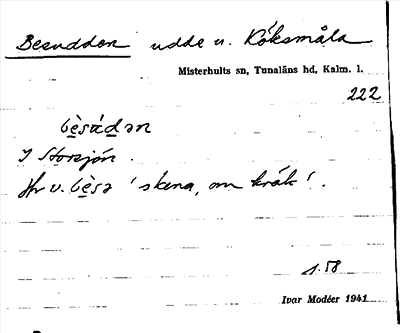 Besudden udde u. Köksmåla
Misterhults sn, Tunaläns hd, Kalm. l.
222
bèsùdən
I Storsjön.
Jfr v. bèsə 'skena, om kräk'.
s. 58
Ivar Modéer 1941